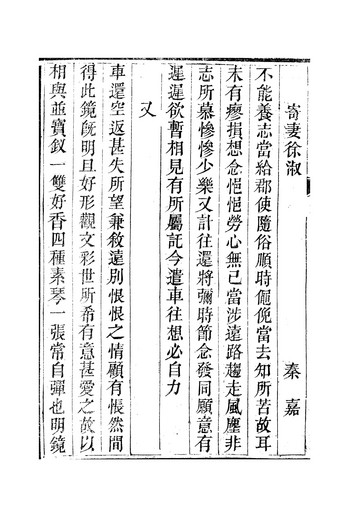 寄妻徐淑
秦嘉
不能養志當給郡使隨俗順時僶俛當去知所苦故耳
未有瘳損想念悒悒勞心無已當涉遠路趨走風塵非
志所慕慘慘少樂又計往還將彌時節念發同願意有
遲遲欲暫相見有所屬託今遣車往想必自力
又
車還空返甚失所望兼敘遠別恨恨之情顧有悵然間
得此鏡旣明且好形觀文彩世所希有意甚愛之故以
相與並寶釵一雙好香四種素琴一張常自彈也明鏡